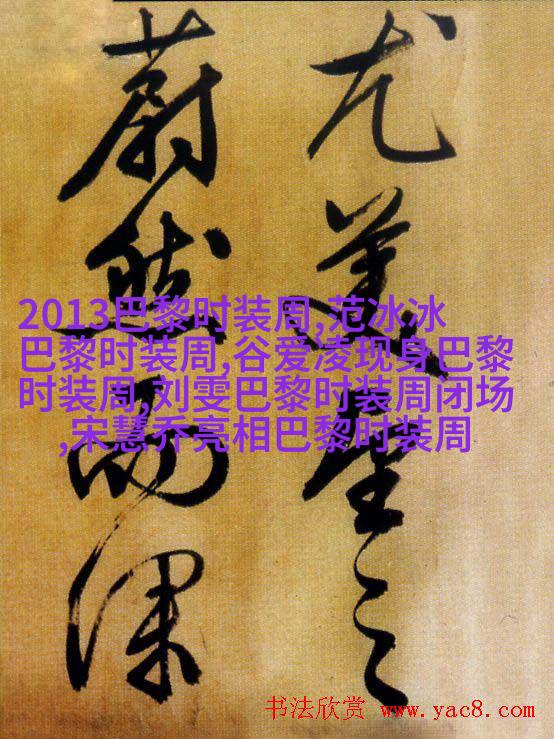 尤美望之
蔚然而深
2013巴黎时装周,范冰冰
巴黎时装周,谷爱凌现身巴黎
时装周,刘雯巴黎时装周闭场
,宋慧乔亮相巴黎时装周
书法欣赏 www.yac8.com